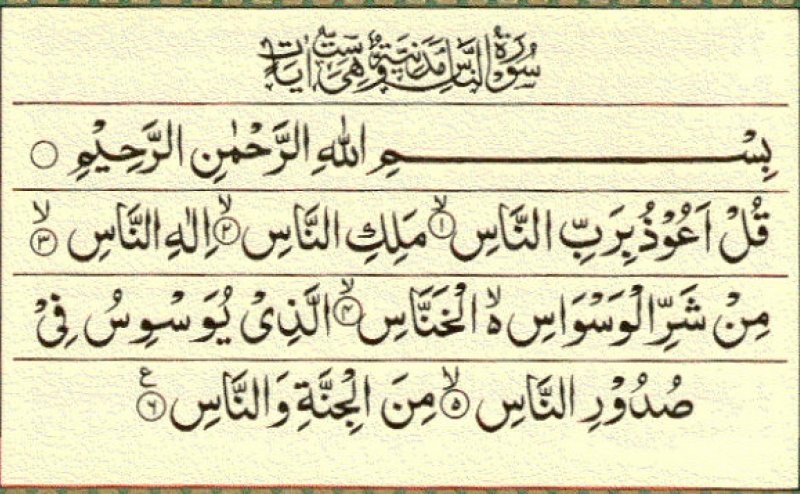 سُوْرَةُ النَّاسِ مَدَنِيَّةٌ وَّهِيَ سِتُّ اٰيَاتٍ
بِسْمِ اللهِ الرَّحْمٰنِ الرَّحِيْمِ ○
قُلْ اَعُوْذُ بِرَبِّ النَّاسِ ۙ﴿۱﴾ مَلِكِ النَّاسِ ۙ﴿۲﴾ اِلٰهِ النَّاسِ ۙ﴿۳﴾
مِنْ شَرِّ الْوَسْوَاسِ ۙ۬ الْخَنَّاسِ ۙ﴿۴﴾ الَّذِىْ يُوَسْوِسُ فِىْ
صُدُوْرِ النَّاسِ ۙ﴿۵﴾ مِنَ الْجِنَّةِ وَالنَّاسِ ﴿۶﴾ ع